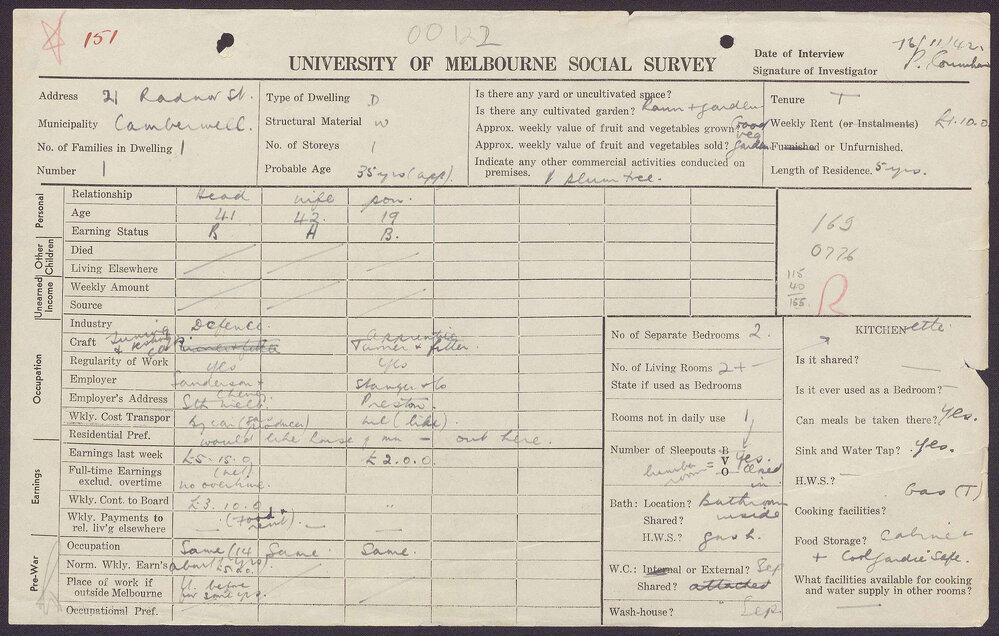 151
00122
UNIVERSITY OF MELBOURNE SOCIAL SURVEY
Date of Interview 16/11/42.
Signature of Investigator P.
Address 21 Radnor St.
Municipality Camberwell.
No. of Families in Dwelling 1
Number 1
Type of Dwelling D
Structural Material W
No. of Storeys 1
Probable Age 35 yrs (app).
Is there any yard or uncultivated space?
Is there any cultivated garden? Lawn + garden
Approx. weekly value of fruit and vegetables grown? Good veg
Approx. weekly value of fruit and vegetables sold? Garden
Indicate any other commercial activities conducted on
premises. 1 plum tree.
Tenure T
Weekly Rent (or Instalments) £1.10.0
Furnished or Unfurnished.
Length of Residence. 5 yrs.
Personal
Relationship Head wife son.
Age 41 42 19
Earning Status B H B.
Other Children
Died
Living Elsewhere
Unearned Income
Weekly Amount
Source
169
0776
115
40
155
R
Occupation
Industry Defence.
Craft & testing Turner & fitter Apprentice Turner & fitter.
Regularity of Work Yes Yes
Employer Sanderson + Stanger & Co
Employer's Address Sth Melb Preston.
Wkly. Cost Transpor By car (gas producer) nil (bike).
Residential Pref. would like house of own - out here.
Earnings
Earnings last week £5.15.0 £2.0.0.
Full-time Earnings (net)
exclud. overtime no overtime.
Wkly. Cont. to Board £3.10.0 "
Wkly. Payments to (Food +
rel. liv'g elsewhere rent)
Pre-War
Occupation Same (14 yrs) Same. Same.
Norm. Wkly. Earn's about £5.5.0.
Place of work if
outside Melbourne
Occupational Pref.
No of Separate Bedrooms 2.
No. of Living Rooms 2 +
State if used as Bedrooms
Rooms not in daily use 1
Number of Sleepouts B V O Yes. closed in
Bath: Location? Bathroom
Shared? inside
H.W.S.? gas h.
W.C.: Internal or External? Sep
Shared? attached
Wash-house? Sep.
KITCHENette.
Is it shared?
Is it ever used as a Bedroom?
Can meals be taken there? Yes.
Sink and Water Tap? Yes.
H.W.S.?
Gas (T)
Cooking facilities?
Food Storage? Cabinet
+ Coolgardie Safe.
What facilities available for cooking
and water supply in other rooms?